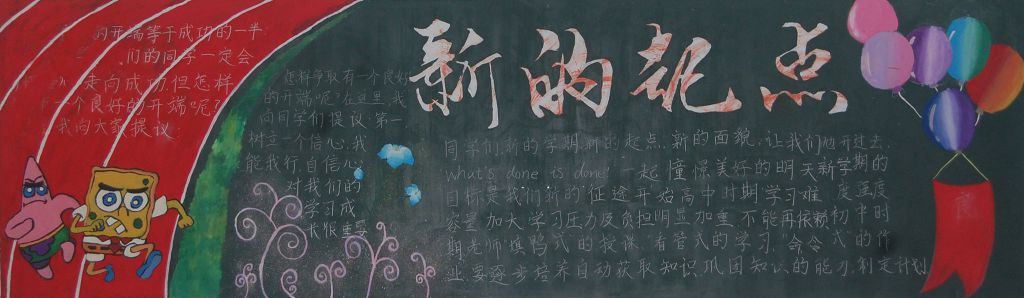 新的起点
的开端等于成功的一半
们的同学一定会
走向成功,但怎样
一个良好的开端呢?
我向大家提议:
怎样争取有一个良好
的开端呢?在这里,我
向同学们提议:第一
树立一个信心:我
能我行,自信心
对我们的
学习成
长很重要
同学们,新的学期,新的起点,新的面貌,让我们抛开过去,
what's done is done! 一起憧憬美好的明天新学期的
目标是我们新的征途开始高中时期学习难度强度
容量加大学习压力及负担明显加重不能再依赖初中时
期老师填鸭式的授课,看管式的学习,命令式的作
业,要逐步培养自动获取知识巩固知识的能力,制定计划